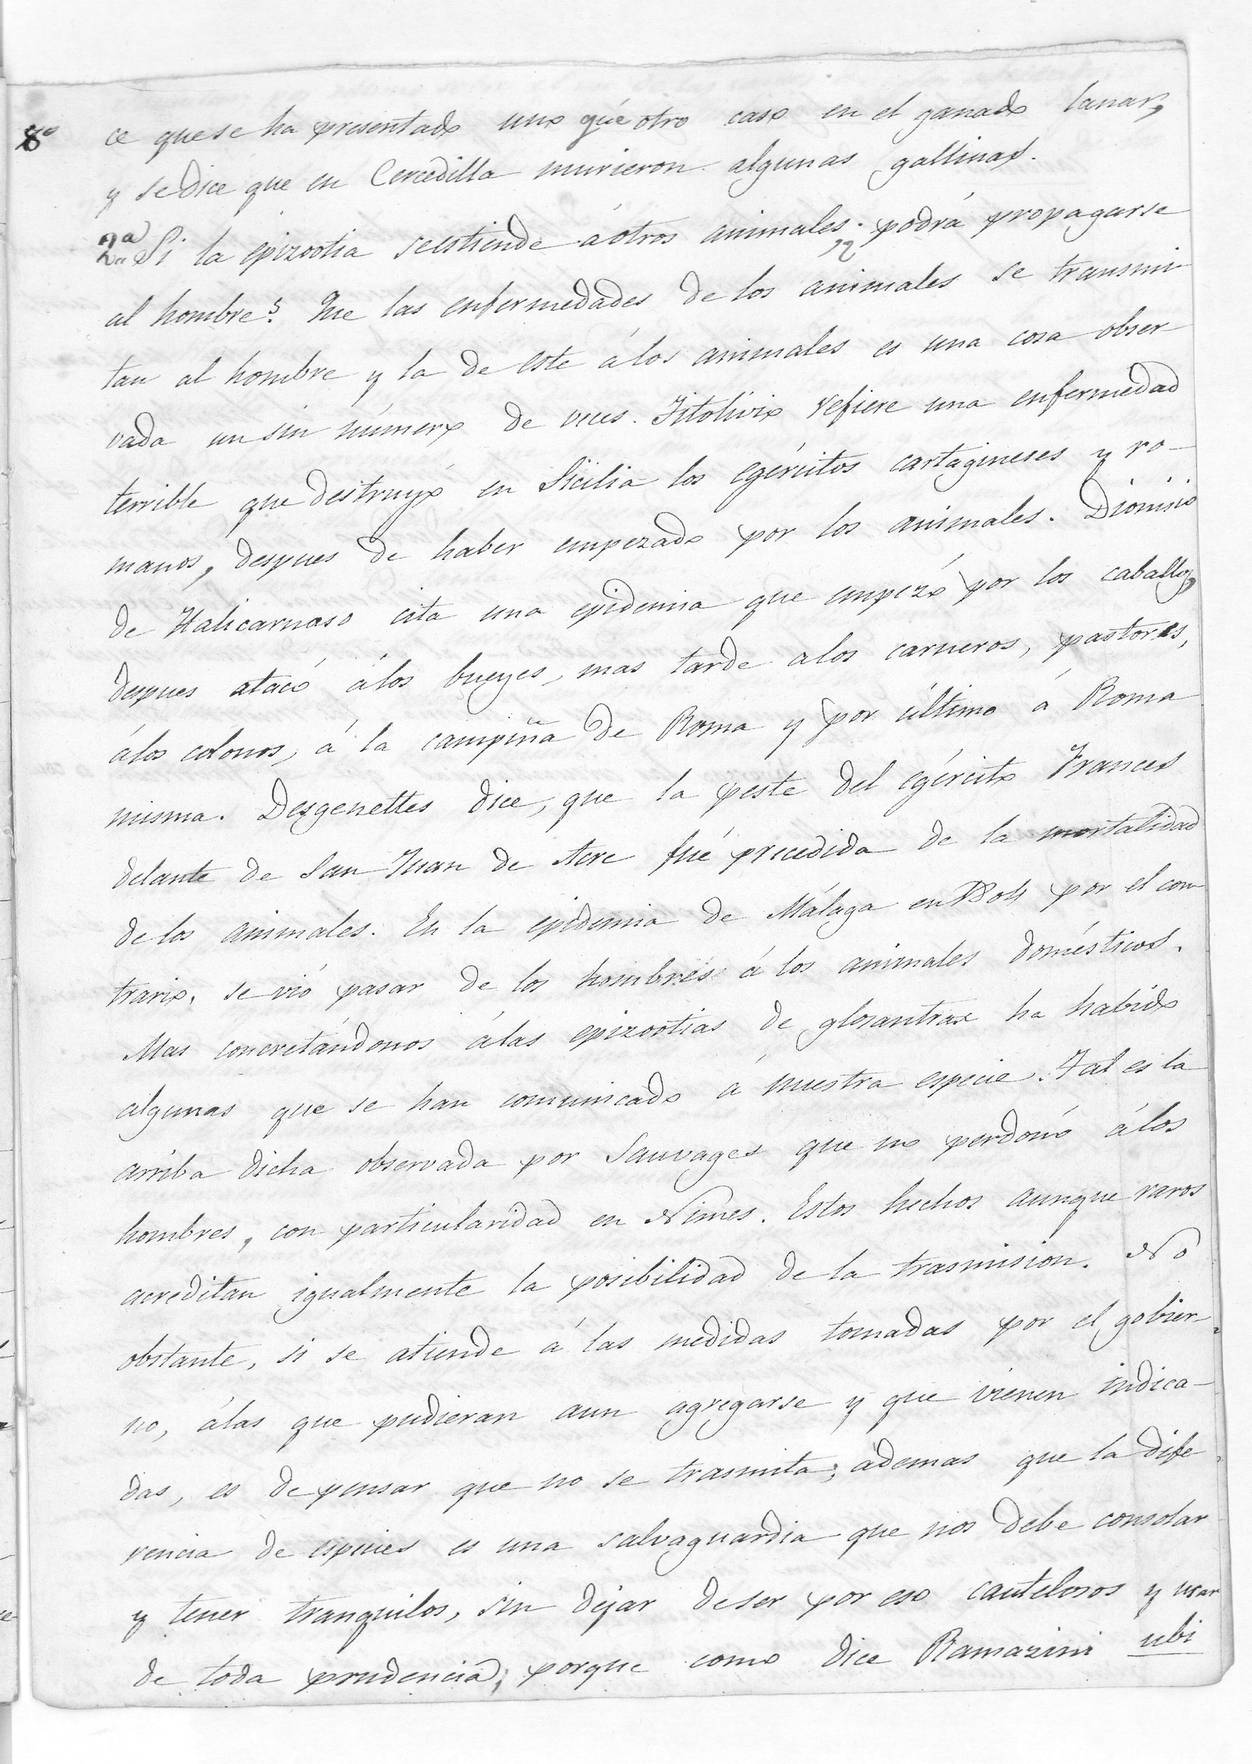 8º
ce que se ha presentado uno que otro caso en el ganado lanar,
y se dice que en Cercedilla murieron algunas gallinas.
2ª Si la epizootia se estiende á otros animales ¿podrá propagarse
al hombre? Que las enfermedades de los animales se transmi
tan al hombre y la de este á los animales es una cosa obser
vada un sin número de veces. Titolivio refiere una enfermedad
terrible que destruyó en Sicilia los egércitos cartagineses y ro-
manos, despues de haber empezado por los animales. Dionisio
de Halicarnaso cita una epidemia que empezó por los caballos,
despues atacó á los bueyes, mas tarde a los carneros, pastores,
á los colonos, á la campiña de Roma y por último á Roma
misma. Desgenettes dice, que la peste del egército Frances
delante de San Juan de Acre fué precedida de la mortalidad
de los animales. En la epidemia de Málaga en 1804 por el con
trario, se vió pasar de los hombres á los animales domésticos.
Mas concretándonos á las epizootias de glosantrax ha habido
algunas que se han comunicado á nuestra especie. Tal es la
arriba dicha observada por Sauvages que no perdonó á los
hombres, con particularidad en Nimes. Estos hechos aunque raros
acreditan igualmente la posibilidad de la trasmision. No
obstante, si se atiende á las medidas tomadas por el gobier-
no, á las que pudieran aun agregarse y que vienen indica-
das, es de pensar que no se trasmita; ademas que la dife
rencia de especies es una salvaguardia que nos debe consolar
y tener tranquilos, sin dejar de ser por eso cautelosos y usar
de toda prudencia, porque como dice Ramazini ubi